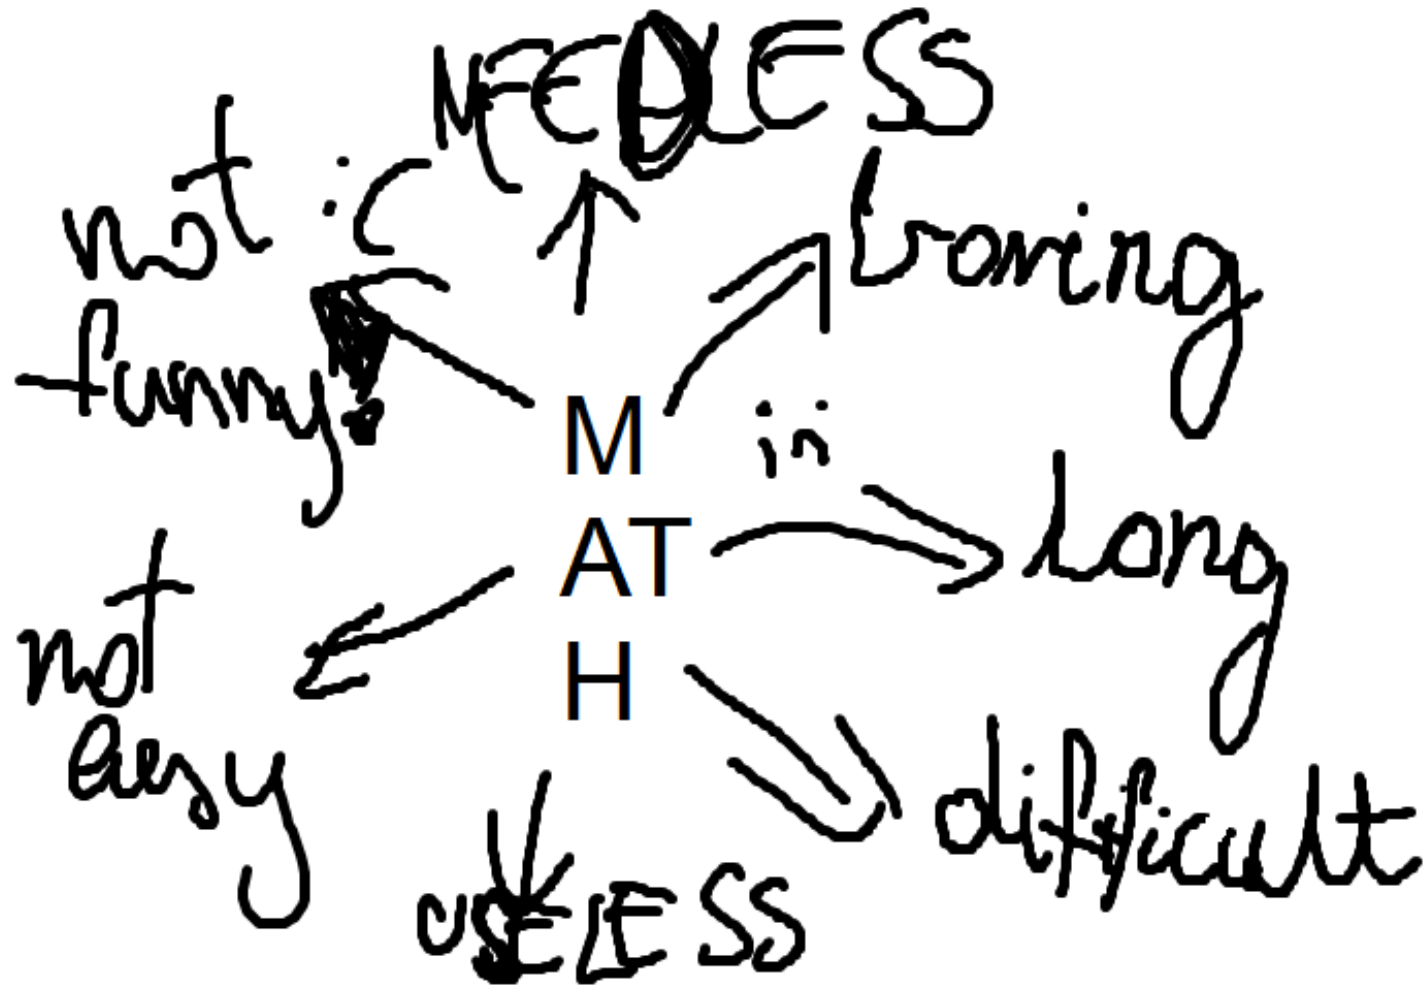 NEEDLESS
not :(
funny
boring
M
is
AT
long
H
not
easy
difficult
USELESS